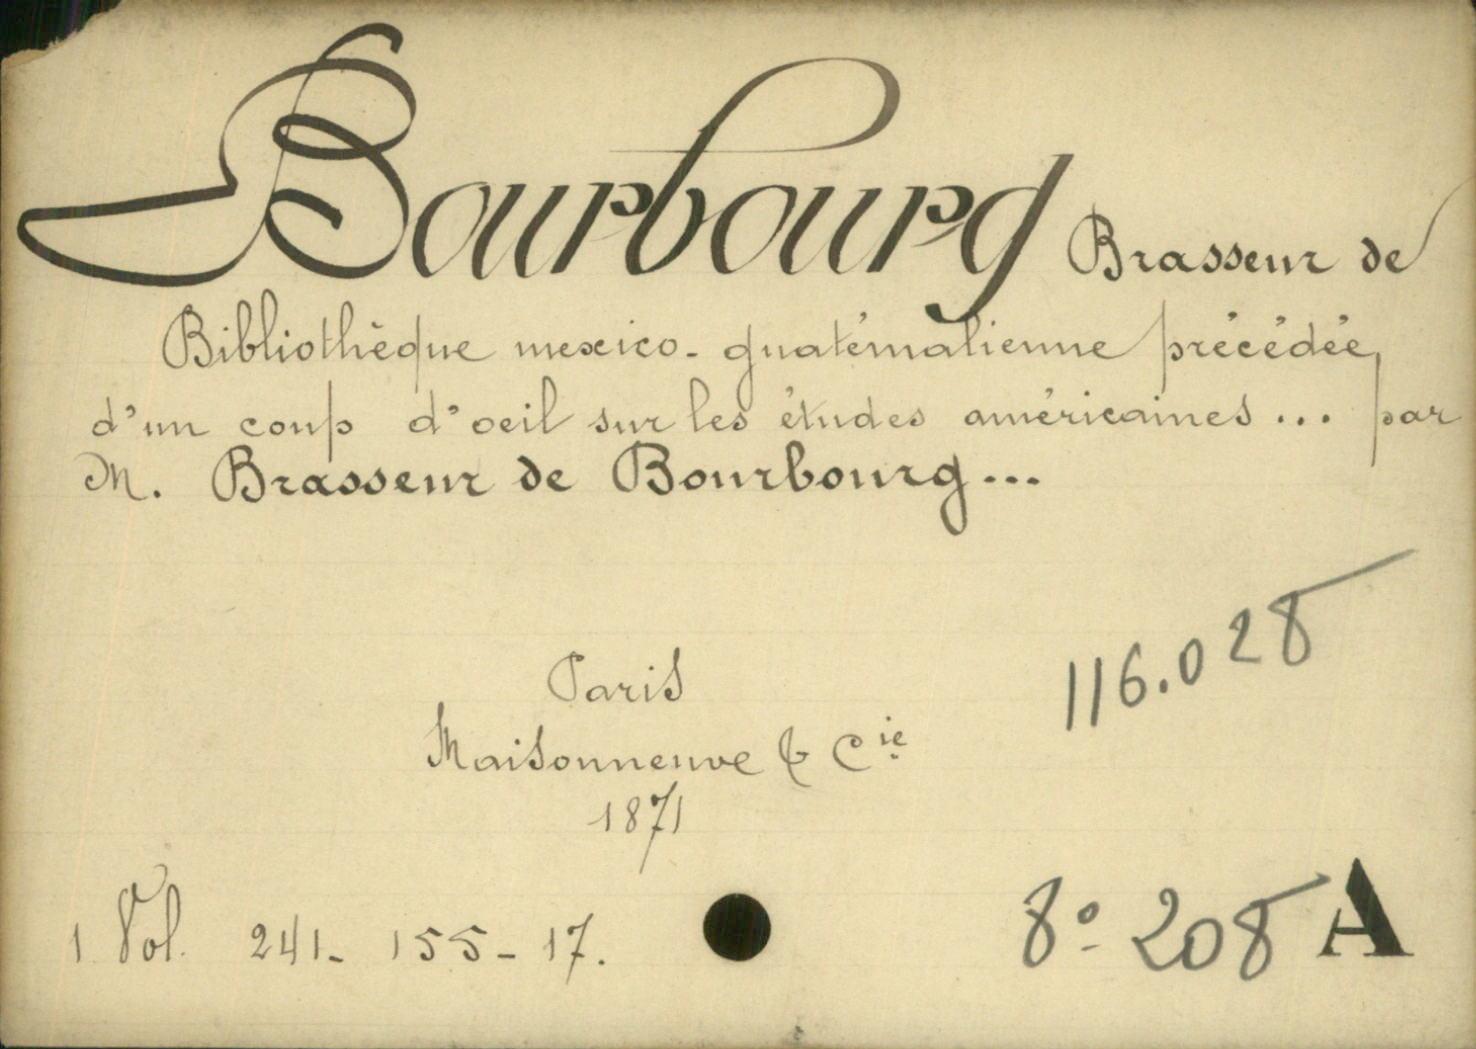 Bourbourg Brasseur de
Bibliothèque mexico-guatémalienne précédée
d'un coup d'oeil sur les études américaines... par
M. Brasseur de Bourbourg...
116.028
Paris
Maisonneuve & Cie
1871
1 Vol. 241-155-17.
8º 208 A